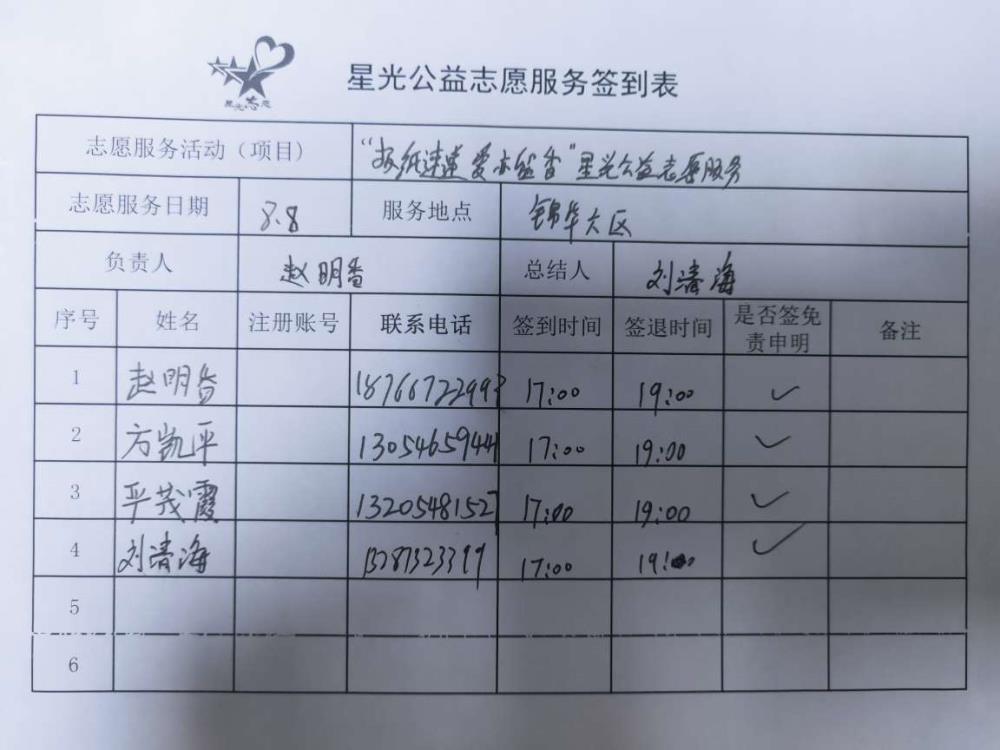 星光志愿
星光公益志愿服务签到表
志愿服务活动（项目） 星光公益志愿服务
志愿服务日期 8.8 服务地点 锦华大区
负责人 赵明香 总结人 刘清海
序号 姓名 注册账号 联系电话 签到时间 签退时间 是否签免责申明 备注
1 赵明香 18766722993 17:00 19:00 ✓
2 方凯平 13054659444 17:00 19:00 ✓
3 平茂霞 13205481527 17:00 19:00 ✓
4 刘清海 17:00 19:00 ✓
5
6